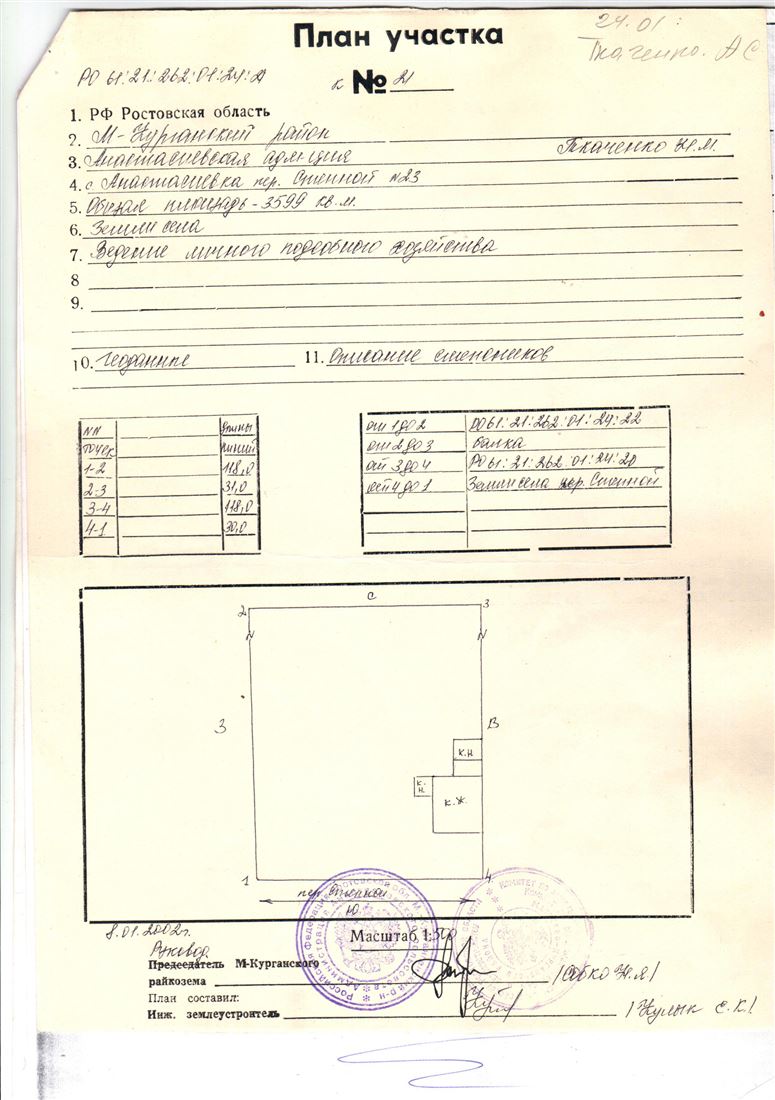 План участка
24.01:
Ткаченко. А С.
РО 61:21:262:01:24:21
к № 21
1. РФ Ростовская область
2. М-Курганский район
3. Анастасиевская адм-ция Ткаченко Н.М.
4. с Анастасиевка пер. Степной N23
5. Общая площадь - 3599 кв.м.
6. Земли села
7. Ведение личного подсобного хозяйства
8
9.
10. Геоданные 11. Описание смежников
NN длины
точек линий
1-2 118,0
2-3 31,0
3-4 118,0
4-1 30,0
от 1 до 2 РО 61:21:262:01:24:22
от 2 до 3 балка
от 3 до 4 РО 61:21:262:01:24:20
от 4 до 1 Земли села пер. Степной
С
2 3
N N
З В
К.Н.
К.Н.
К.Ж.
1 4
пер. Степной
Ю
8.01.2002г. Масштаб 1:500
Руковод.
Председатель М-Курганского
райкозема
План составил:
Инж. землеустроитель /Кулык Е.К/